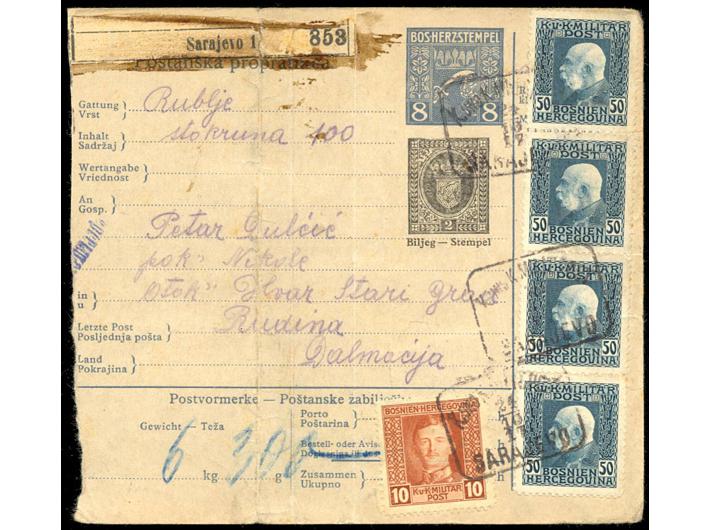 Sarajevo 1 853
Poštanska propratnica
BOS-HERZ STEMPEL
8 8
Gattung
Vrst
Rublje
Inhalt
Sadržaj
stokruna 100
Wertangabe
Vrijednost
2
Biljeg — Stempel
An
Gosp.
Petar Dulčić
pok. Nikole
in
u
Otok: Hvar Stari Grad
Letzte Post
Posljednja pošta
Rudina
Land
Pokrajina
Dalmacija
Postvormerke — Poštanske zabilješke
Gewicht Teža
6 kg 300 g
Porto
Poštarina
Bestell- oder Avis
Zusammen
Ukupno
K.u.K. MILITÄR
POST
50 50
BOSNIEN
HERCEGOVINA
K.u.K. MILITÄR
POST
50 50
BOSNIEN
HERCEGOVINA
K.u.K. MILITÄR
POST
50 50
BOSNIEN
HERCEGOVINA
K.u.K. MILITÄR
POST
50 50
BOSNIEN
HERCEGOVINA
BOSNIEN-HERCEGOVINA
10 10
K.u.K. MILITÄR
POST
SARAJEVO
SARAJEVO
SARAJEVO